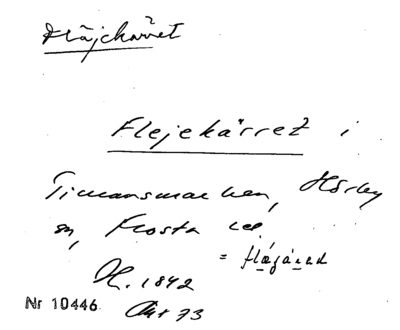 Fläjckärret
Flejekärret i
Timansmarken, Hörby
sn, Frosta
H. 1842
Nr 10446 Akt 73